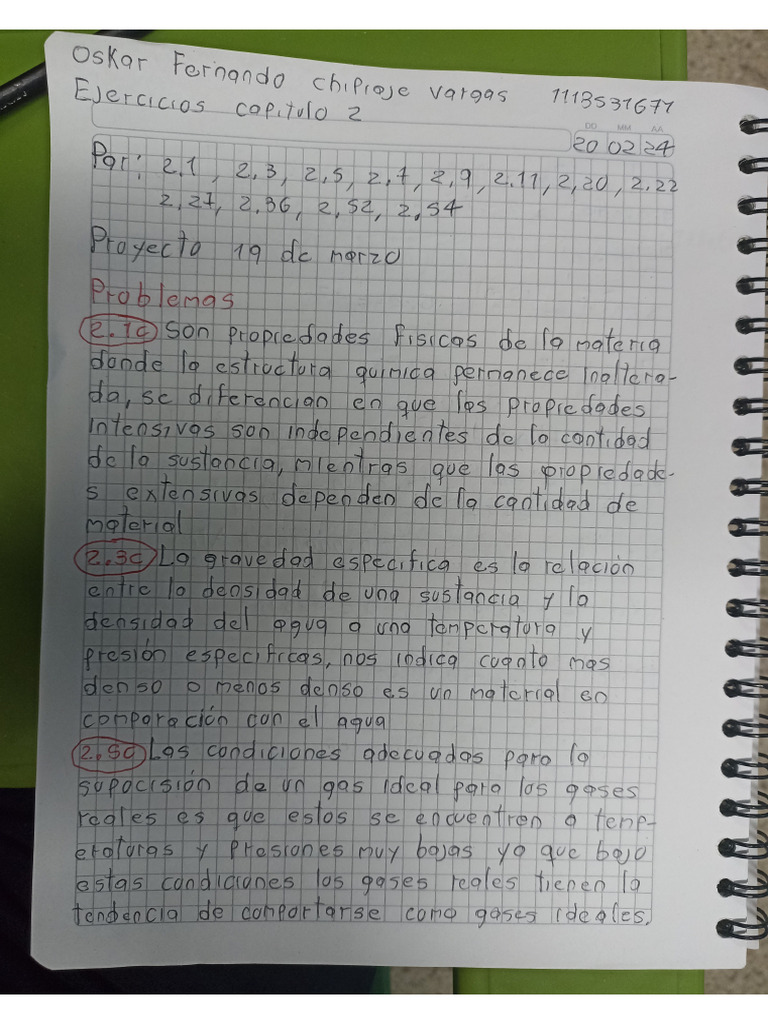 Oskar Fernando Chiproje Vargas 1113531671
Ejercicios capitulo 2
DD MM AA
20 02 24
Par: 2.1, 2,3, 2,5, 2,7, 2,9, 2.11, 2,20, 2.22
2,27, 2,36, 2,52, 2,54
Proyecto 19 de marzo
Problemas
2.1C Son propiedades fisicas de la materia
donde la estructura quimica permanece inaltera-
da, se diferencian en que las propiedades
intensivas son independientes de la cantidad
de la sustancia, mientras que las propiedade-
s extensivas dependen de la cantidad de
material
2.3C La gravedad especifica es la relación
entre la densidad de una sustancia y la
densidad del agua a una temperatura y
presión especificas, nos indica cuanto mas
denso o menos denso es un material en
comparación con el agua
2.5C Las condiciones adecuadas para la
supocisión de un gas ideal para los gases
reales es que estos se encuentren a temp-
eraturas y presiones muy bajas ya que bajo
estas condiciones los gases reales tienen la
tendencia de comportarse como gases ideales.